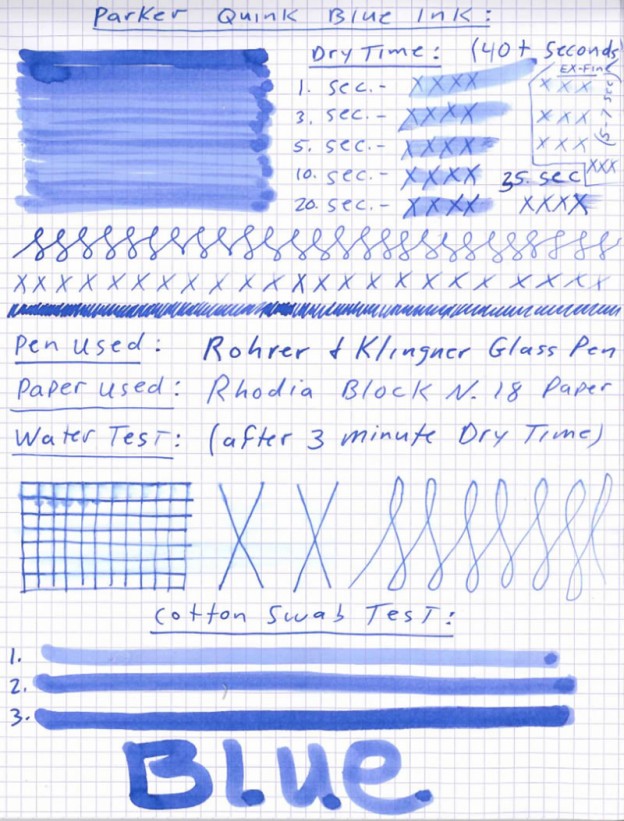 Parker Quink Blue Ink:
Dry Time: (40+ seconds
EX-Fine
1. sec.- XXXX XXX
3. sec.- XXXX XXX
5. sec.- XXXX XXX
10. sec.- XXXX XXX
35. sec
20. sec.- XXXX XXXX
XXXXXXXXXXXXXXXXXXXXXXXXXX
Pen Used: Rohrer & Klingner Glass Pen
Paper Used: Rhodia Block N. 18 Paper
Water Test: (after 3 minute Dry Time)
X X
Cotton Swab Test:
1.
2.
3.
Blue